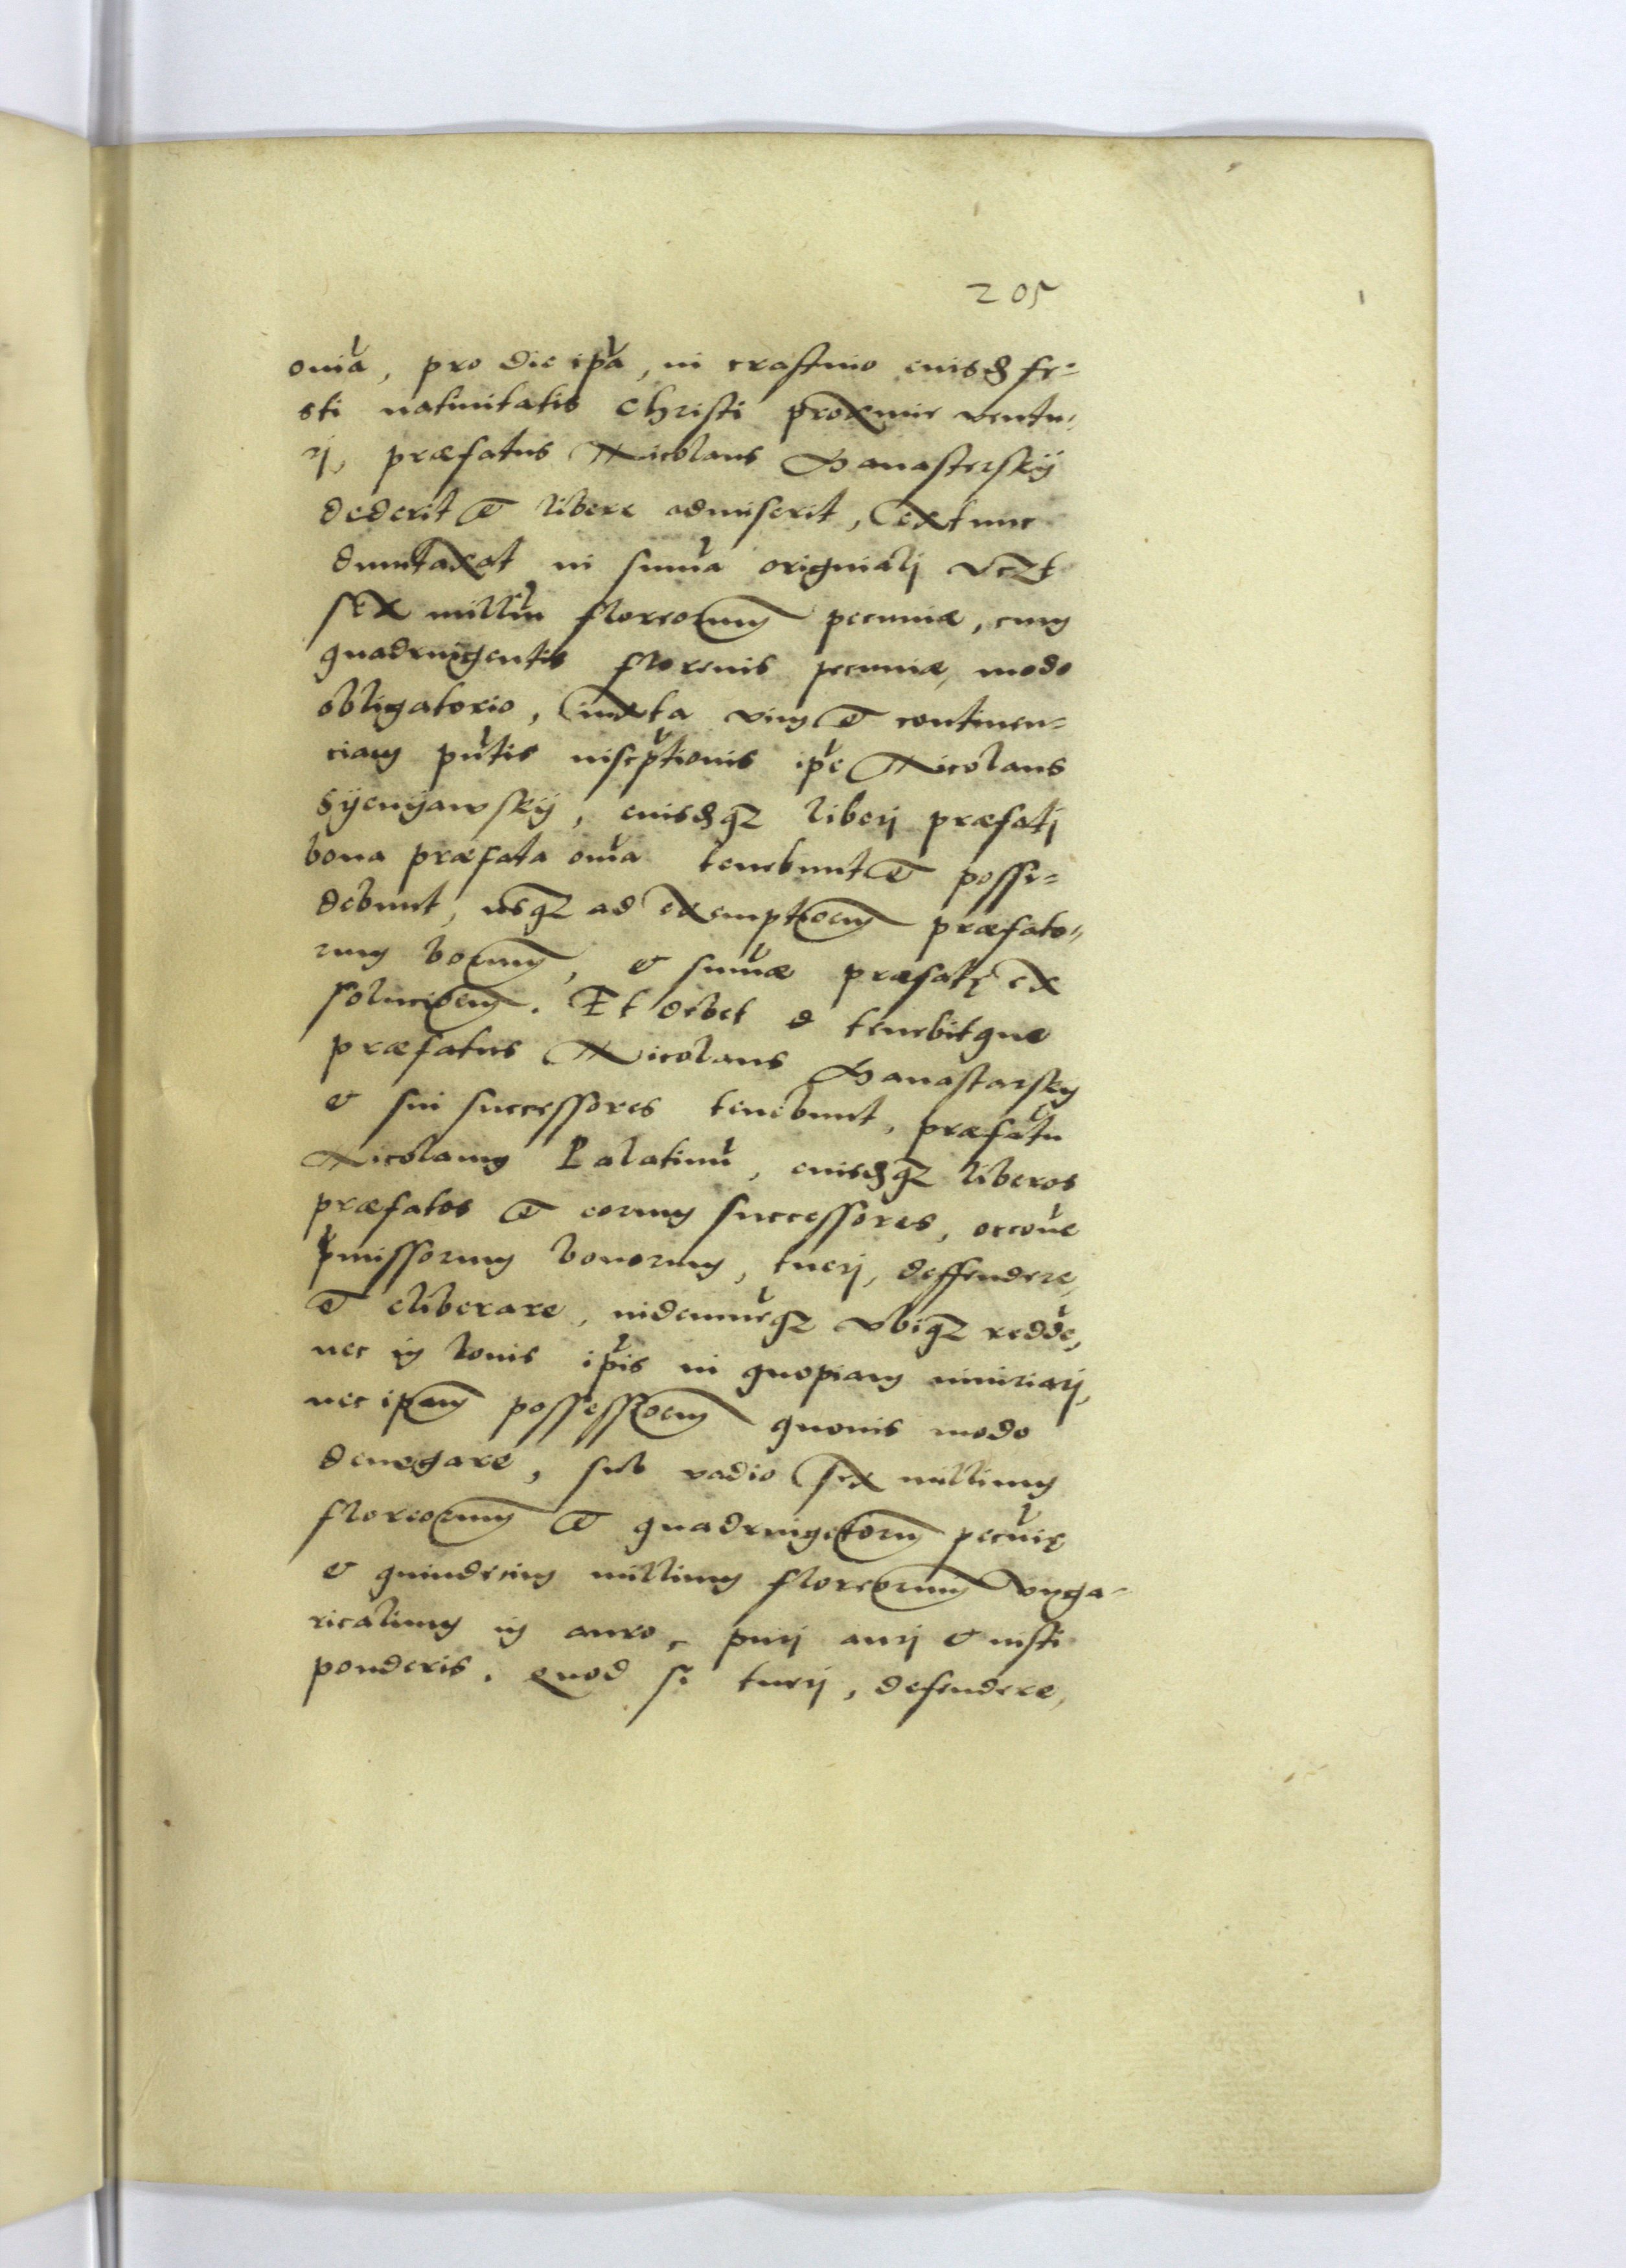 205
om̃a, pro die ip̃a, in crastino eiusdꝫ fe=
sti natiuitatis Christi proxime ventu,,
rj, præfatus Nicolaus
dederit et libere admiserit, extunc
duntaxat in sum̃a originalj vczt
sex milliũ floreorum pecuniæ, cum
quadringentis florenis pecuniæ, modo
obligatorio, iuxta vim et continen=
ciam pñtis inscp̃tionis ip̃e Nicolaus
Syenyawskÿ, eiusdꝫqꝫ liberj præfatj
bona præfata om̃a tenebunt et possi=
debunt, usqꝫ ad exemptioem præfato,,
rum boorum, et sum̃æ præfatę ex
solucioem. Et debet et tenebitque
præfatus Nicolaus
et sui successores tenebunt, præfatũ
Nicolaum Palatinũ, eiusdꝫqꝫ liberos
præfatos et eorum successores, occoñe
p̃missorum bonorum, tuerj, deffendere,
et eliberare, indemneqꝫ vbiqꝫ redde,
nec in bonis ip̃is in quopiam iniuriarj,
nec ipsam possessioem quouis modo
denegare, sub vadio sex millium
floreorum et quadringetorum pecũię
et quindecim millium floreorum Vnga-
ricalium in auro, purj aurj et iusti
ponderis. Quod si tuerj, defendere,